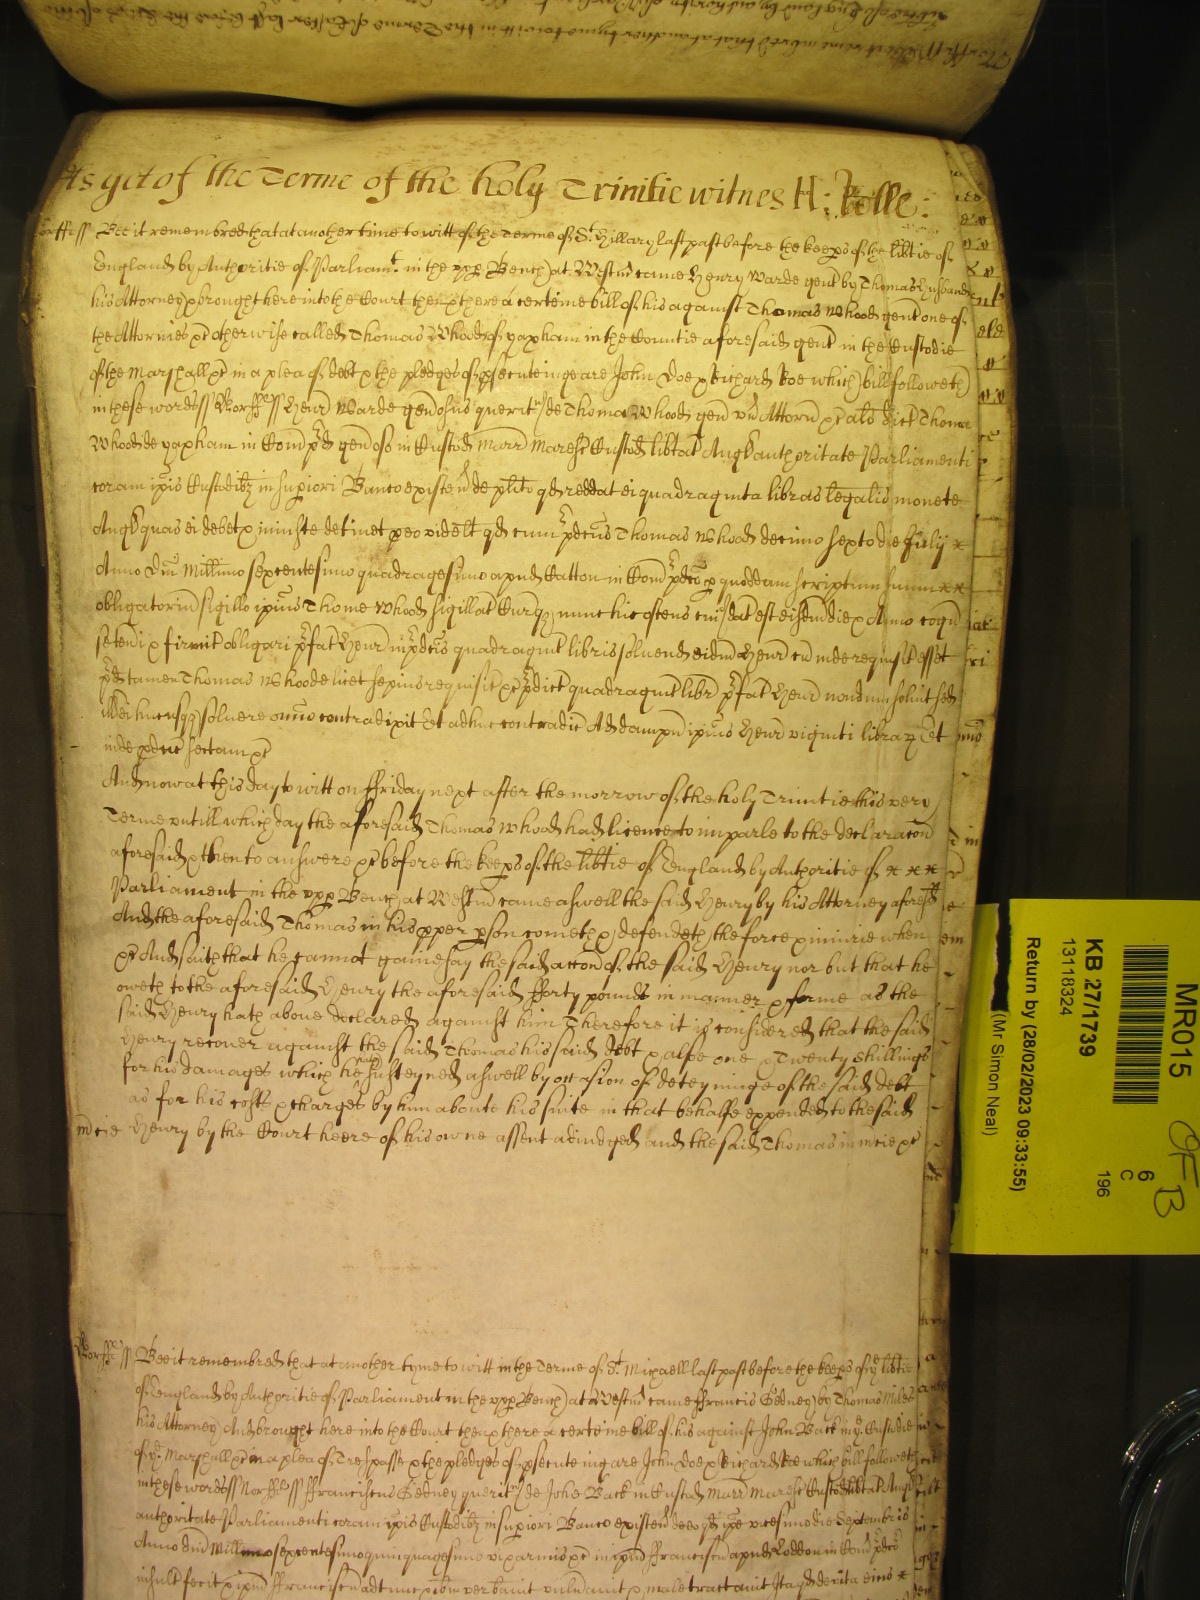 As yet of the Terme of the holy Trinitie witnes H: Rolle:
Norff ss Bee it remembred that at another time to witt of the Terme of St. Hillary last past before the keeps of the libtie of
England by Authoritie of Parliamt. in the upp Bench at Westm came Henry Warde gent by Thomas Husband
his Attorney & brought here into the Court then & there a certeine bill of his against Thomas Whood gent one of
the Attornies &c otherwise called Thomas Whood of yaxham in the Countie aforesaid gent in the Custodie
of the Marshall &c in a plea of debt & the pledges of psecuteinge are John Doe & Richard Roe which bill followeth
in these wordes ss Norff ss Henr Warde genosus querit de Thoma Whood gen un Attorn &c alio dict Thoma
Whood de yaxham in Com pd genoso in Custod Marr Maresc Custod libtat Angl authoritate Parliamenti
coram ipis Custodibz in supiori Banco existen de plito qd reddat ei quadraginta libras legalis monete
Angl quas ei debet & iniuste detinet p eo videlt qd cum pdcus Thomas Whood decimo sexto die July x
Anno Dni Millimo sexcentesimo quadragesimo apud Catton in Com pdco p quoddam scriptum suum x x
obligatorium sigillo ipius Thome Whood sigillat Curqz nunc hic ostens cuius dat est eisdem die & Anno cogn
se teneri & firmit obligari pfat Henr in pdcis quadragint libris solvend eidem Henr cum inde requisit esset
pd tamen Thomas Whood licet sepius requisit &c pdict quadragint libr pfat Henr nondum solvit sed
ill ei hucusqz solvere omnio contradixit Et adhuc contradic Ad dampn ipius Henr viginti librar Et
inde pduc sectam &c
And now at this day to witt on ffriday next after the morrow of the holy Trinitie this very
Terme untill which day the aforesaid Thomas Whood had licence to imparle to the declaracon
aforesaid & then to answere &c before the keeps of the libtie of England by Authoritie of x x x
Parliament in the upp Bench at Westm came aswell the said Henry by his Attorney aforesd
And the aforesaid Thomas in his pper pson cometh & defendeth the force & iniurie when
&c And saith that he cannot gainesay the said accon of the said Henry nor but that he
oweth to the aforesaid Henry the aforesaid fforty pounds in manner & forme as the
said Henry hath above declared against him Therefore it is considered that the said
Henry recover against the said Thomas his said debt & alsoe one & Twenty shillings
for his damages which he hath susteyned aswell by occasion of deteyninge of the said debt
as for his costs & charges by him aboute his suite in that behalfe expended to the said
mcie Henry by the Court heere of his owne assent adiudged and the said Thomas in mcie &c
Norff ss Bee it remembred that at another tyme to witt in the Terme of St. Michaell last past before the keeps of ye libtie
of England by Authoritie of Parliament in the upp Bench at Westm came ffrancis Gedney by Thomas Miles
his Attorney And brought here into the Court then & there a certeine bill of his against John Back in ye Custodie
of ye Marshall &c in a plea of Trespasse & the pledges of psecuteing are John Doe & Richard Roe which bill followeth
in these wordes ss Norff ss ffranciscus Gedney querit de Johe Back in Custod Marr Maresc Custod libtat Angl
authoritate Parliamenti coram ipis Custodibz in supiori Banco existen de eo qd ipe vicesimo die Septembris
Anno Dni Millimo sexcentesimo quinquagesimo vi & armis &c in ipm ffranciscu apud Loddon in Com pdco
insult fecit & ipm ffranciscu adtunc & ibm verbavit vulnavit & male tractavit Ita qd de vita eius x
MR015
KB 27/1739
13118324
Return by (28/02/2023 09:33:55)
(Mr Simon Neal)
6
C
196
OFB